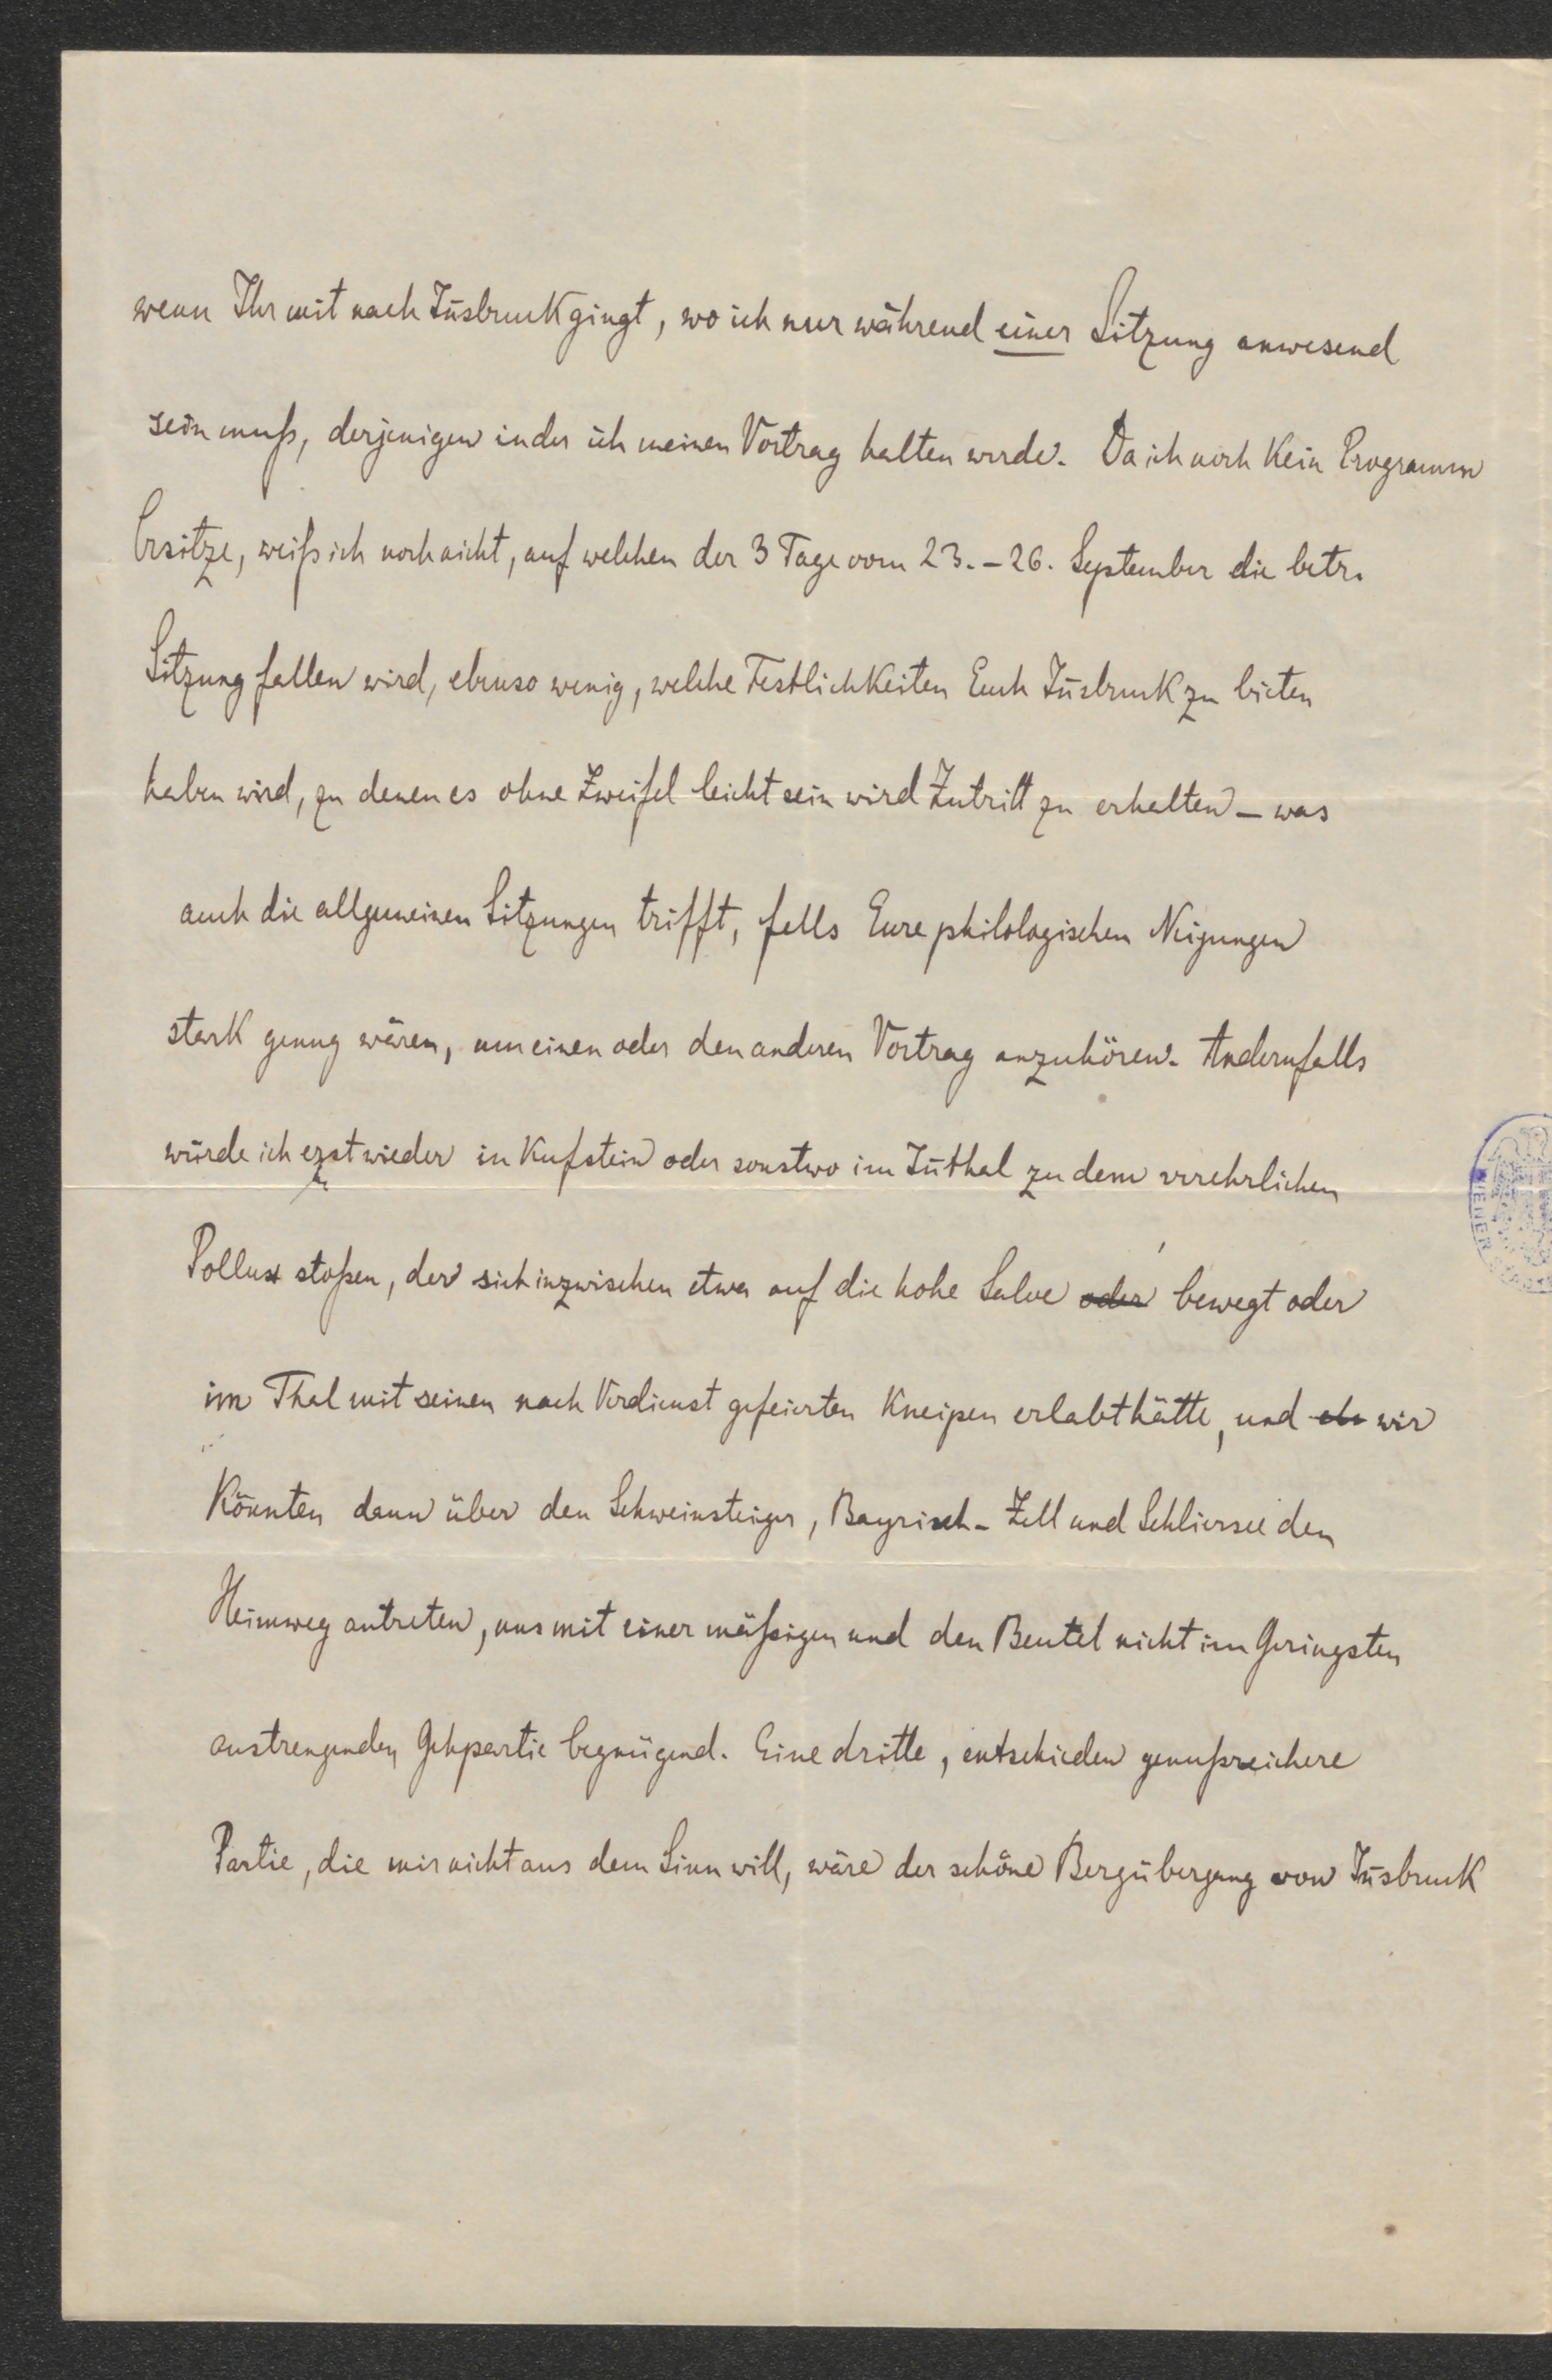 wenn Ihr mit nach Insbruck gingt, wo ich nur während einer Sitzung anwesend
sein muß, derjenigen in der ich meinen Vortrag halten werde. Da ich noch kein Programm
besitze, weiß ich noch nicht, auf welchen der 3 Tage vom 23.–26. September die betr.
Sitzung fallen wird, ebenso wenig, welche Festlichkeiten Euch Insbruck zu bieten
haben wird, zu denen es ohne Zweifel leicht sein wird Zutritt zu erhalten – was
auch die allgemeinen Sitzungen trifft, falls Eure philologischen Neigungen
stark genug wären, um einen oder den anderen Vortrag anzuhören. Andernfalls
würde ich erst wieder in Kufstein oder sonstwo im Inthal zu dem verehrlichen
Pollux stoßen, der sich inzwischen etwa auf die hohe Salve oder bewegt oder
im Thal mit seinen nach Verdienst gefeierten Kneipen erlabt hätte, und wir
könnten dann über den Schweinsteiger, Bayrisch-Zell und Schliersee den
Heimweg antreten, uns mit einer mäßigen und den Beutel nicht im Geringsten
anstrengenden Gehpartie begnügend. Eine dritte, entschieden genußreichere
Partie, die mir nicht aus dem Sinn will, wäre der schöne Bergübergang von Insbruck